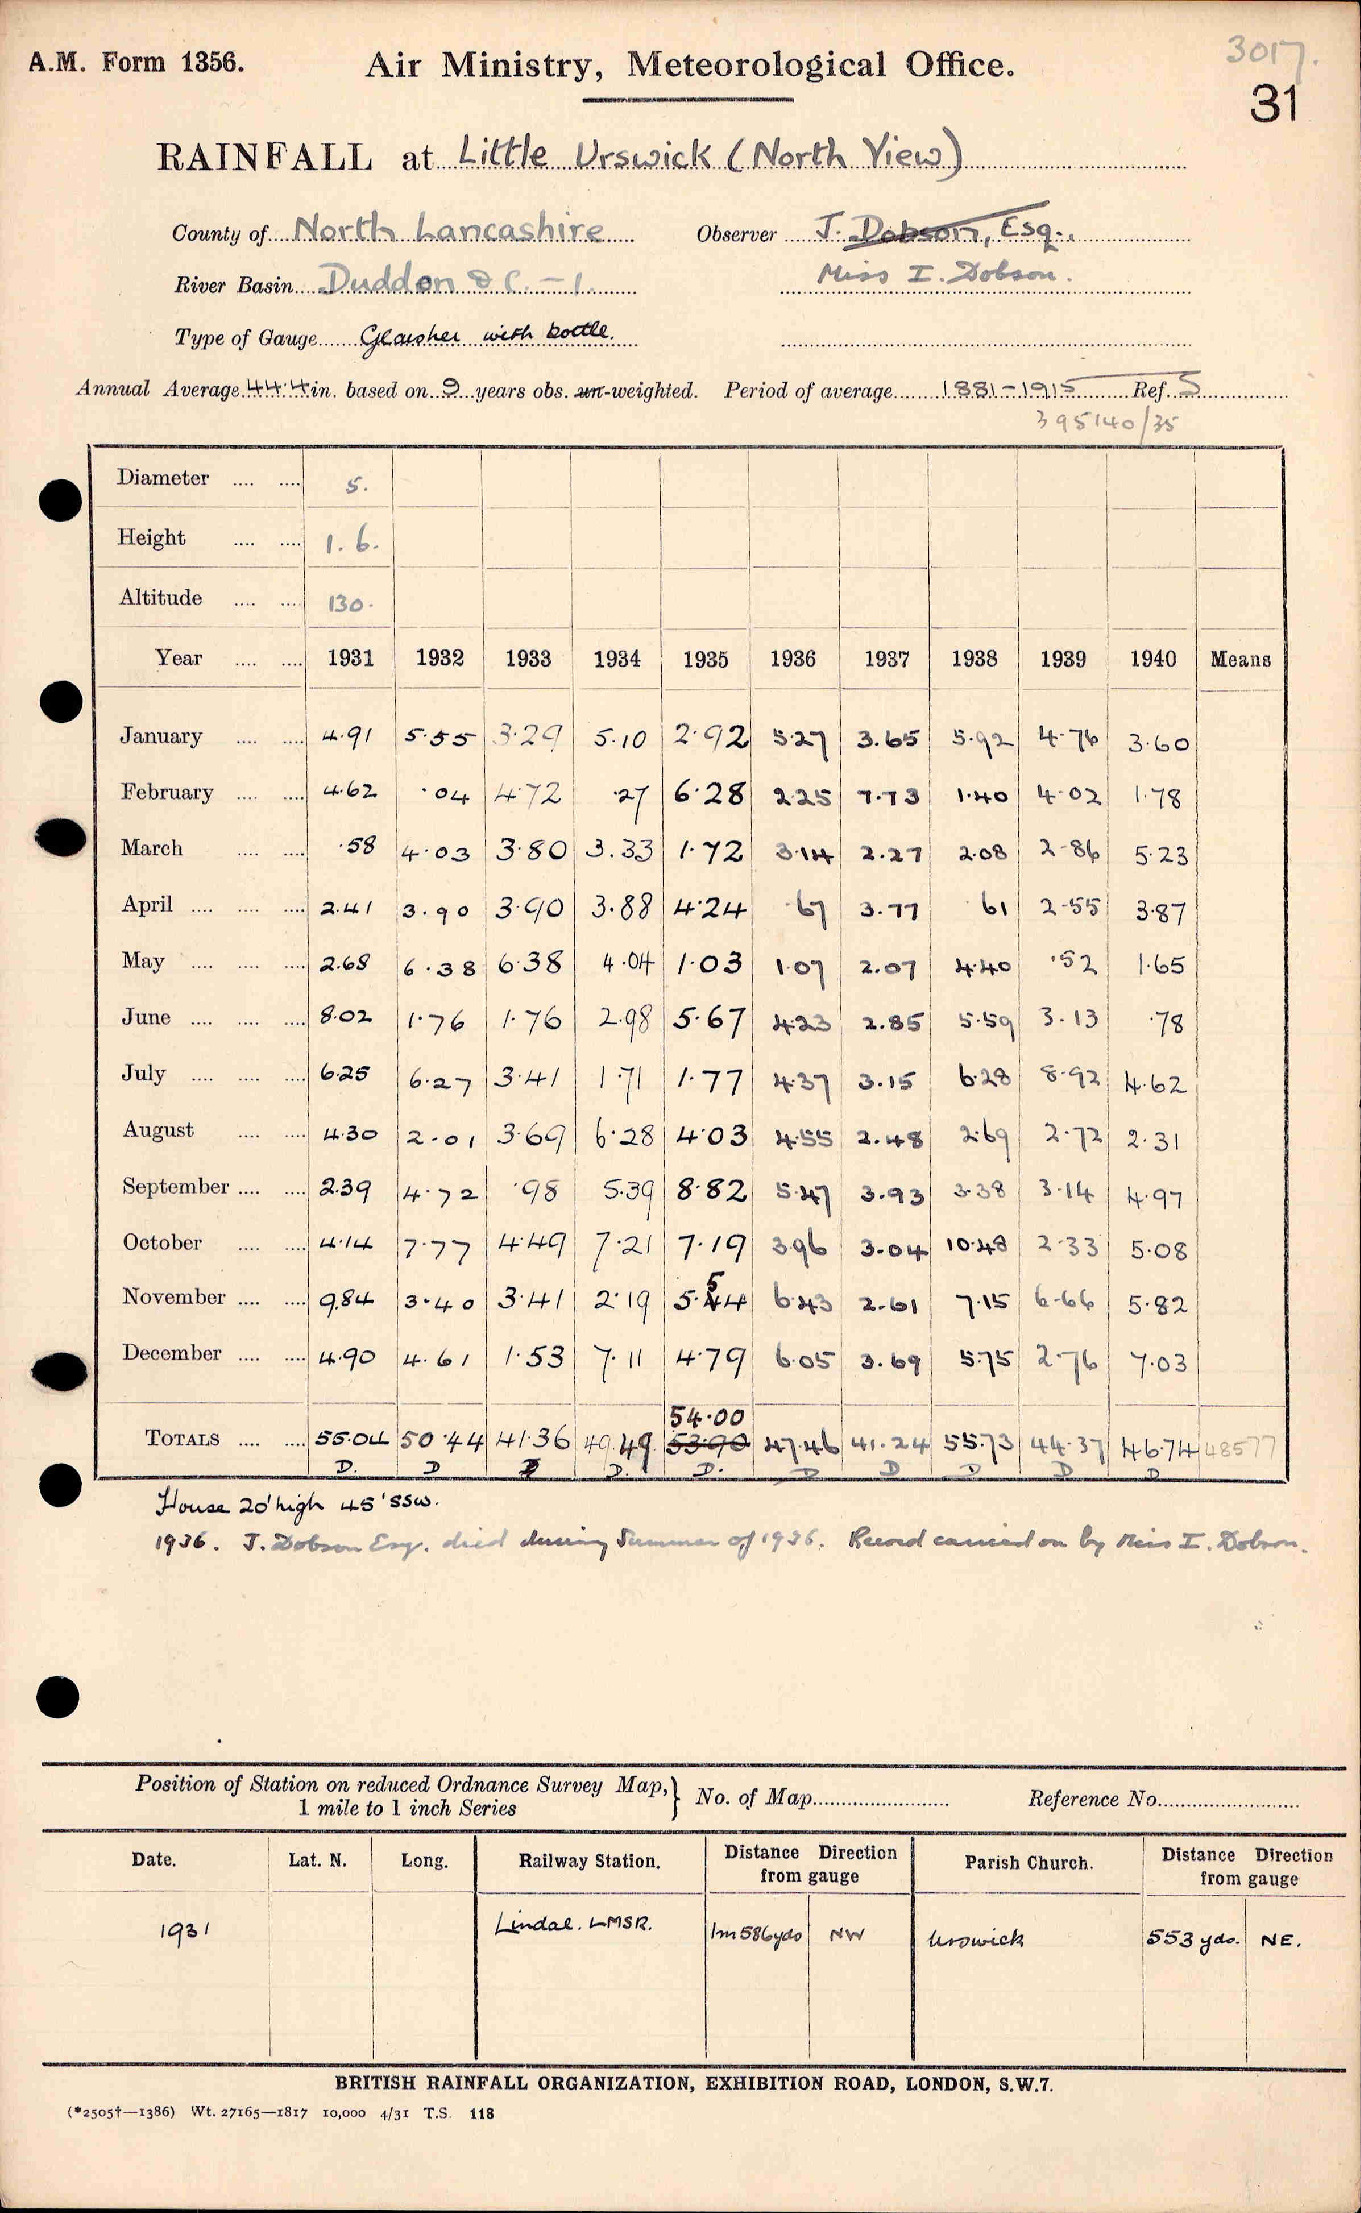 3017.
A.M. Form 1356. Air Ministry, Meteorological Office.
31
RAINFALL at Little Urswick (North View)
County of North Lancashire Observer J. Dobson, Esq.,
River Basin Duddon &c. – 1. Miss I. Dobson.
Type of Gauge Glaisher with bottle.
Annual Average 44.4 in. based on 9 years obs. un-weighted. Period of average 1881–1915 Ref. S
395140/35
Diameter .... .... 5.
Height .... .... 1. 6.
Altitude .... .... 130.
Year .... .... 1931 1932 1933 1934 1935 1936 1937 1938 1939 1940 Means
January .... .... 4.91 5.55 3.29 5.10 2.92 5.27 3.65 5.92 4.76 3.60
February .... .... 4.62 .04 4.72 .27 6.28 2.25 7.73 1.40 4.02 1.78
March .... .... .58 4.03 3.80 3.33 1.72 3.14 2.27 2.08 2.86 5.23
April .... .... .... 2.41 3.90 3.90 3.88 4.24 .67 3.77 61 2.55 3.87
May .... .... .... 2.68 6.38 6.38 4.04 1.03 1.07 2.07 4.40 .52 1.65
June .... .... .... 8.02 1.76 1.76 2.98 5.67 4.23 2.85 5.59 3.13 .78
July .... .... .... 6.25 6.27 3.41 1.71 1.77 4.37 3.15 6.28 8.92 4.62
August .... .... 4.30 2.01 3.69 6.28 4.03 4.55 2.48 2.69 2.72 2.31
September .... .... 2.39 4.72 .98 5.39 8.82 5.47 3.93 3.38 3.14 4.97
October .... .... 4.14 7.77 4.49 7.21 7.19 3.96 3.04 10.48 2.33 5.08
5
November .... .... 9.84 3.40 3.41 2.19 5.44 6.43 2.61 7.15 6.66 5.82
December .... .... 4.90 4.61 1.53 7.11 4.79 6.05 3.69 5.75 2.76 7.03
54.00
TOTALS .... .... 55.04 50.44 41.36 49.49 53.90 47.46 41.24 55.73 44.37 46.74 48577
D. D D D. D. D D D D D
House 20' high 45' SSW.
1936. J. Dobson Esq. died during Summer of 1936. Record carried on by Miss I. Dobson.
Position of Station on reduced Ordnance Survey Map, } No. of Map Reference No.
1 mile to 1 inch Series
Date. Lat. N. Long. Railway Station. Distance from gauge Direction Parish Church. Distance from gauge Direction
1931 Lindal. LMSR. 1m 586yds NW Urswick 553 yds. NE.
BRITISH RAINFALL ORGANIZATION, EXHIBITION ROAD, LONDON, S.W.7.
(*2505†—1386) Wt. 27165—1817 10,000 4/31 T.S. 118